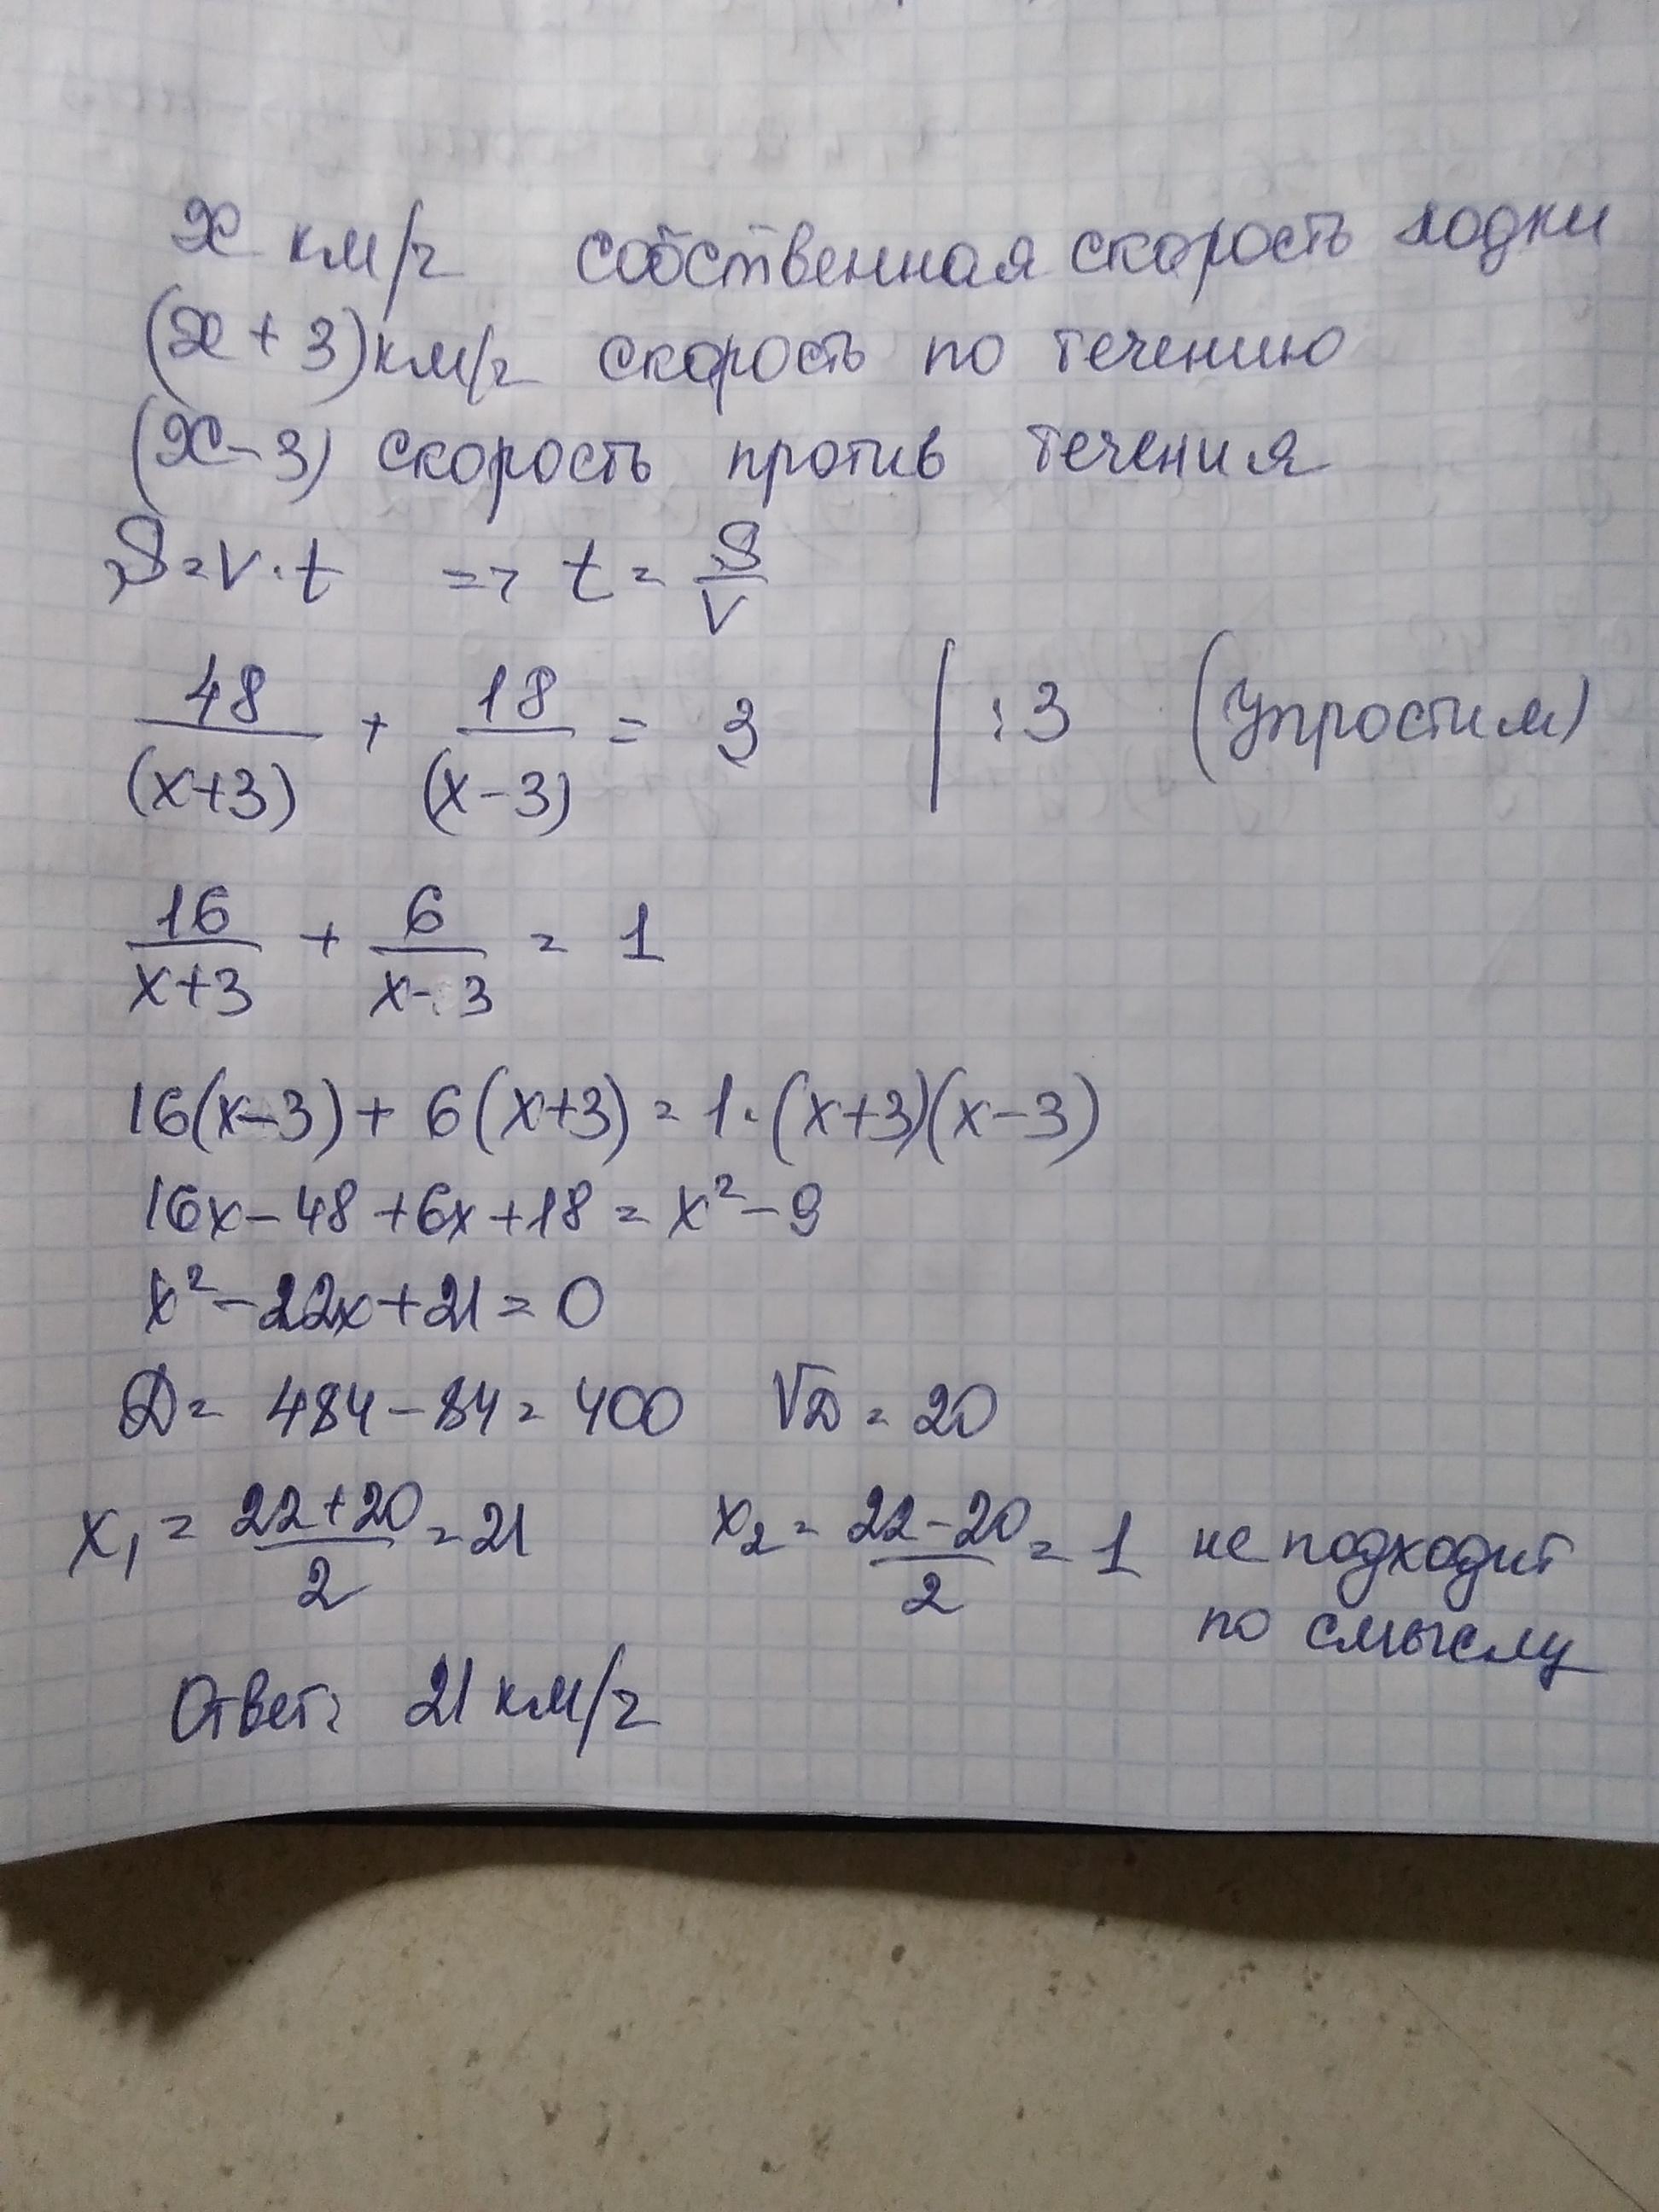 x км/ч собственная скорость лодки
(x + 3) км/ч скорость по течению
(x - 3) скорость против течения
S = v · t => t = S/v
48/(x+3) + 18/(x-3) = 3 | :3 (Упростим)
16/x+3 + 6/x-3 = 1
16(x-3) + 6(x+3) = 1·(x+3)(x-3)
16x - 48 + 6x + 18 = x² - 9
x² - 22x + 21 = 0
D = 484 - 84 = 400 √D = 20
x₁ = 22+20/2 = 21 x₂ = 22-20/2 = 1 не подходит
по смыслу
Ответ: 21 км/ч